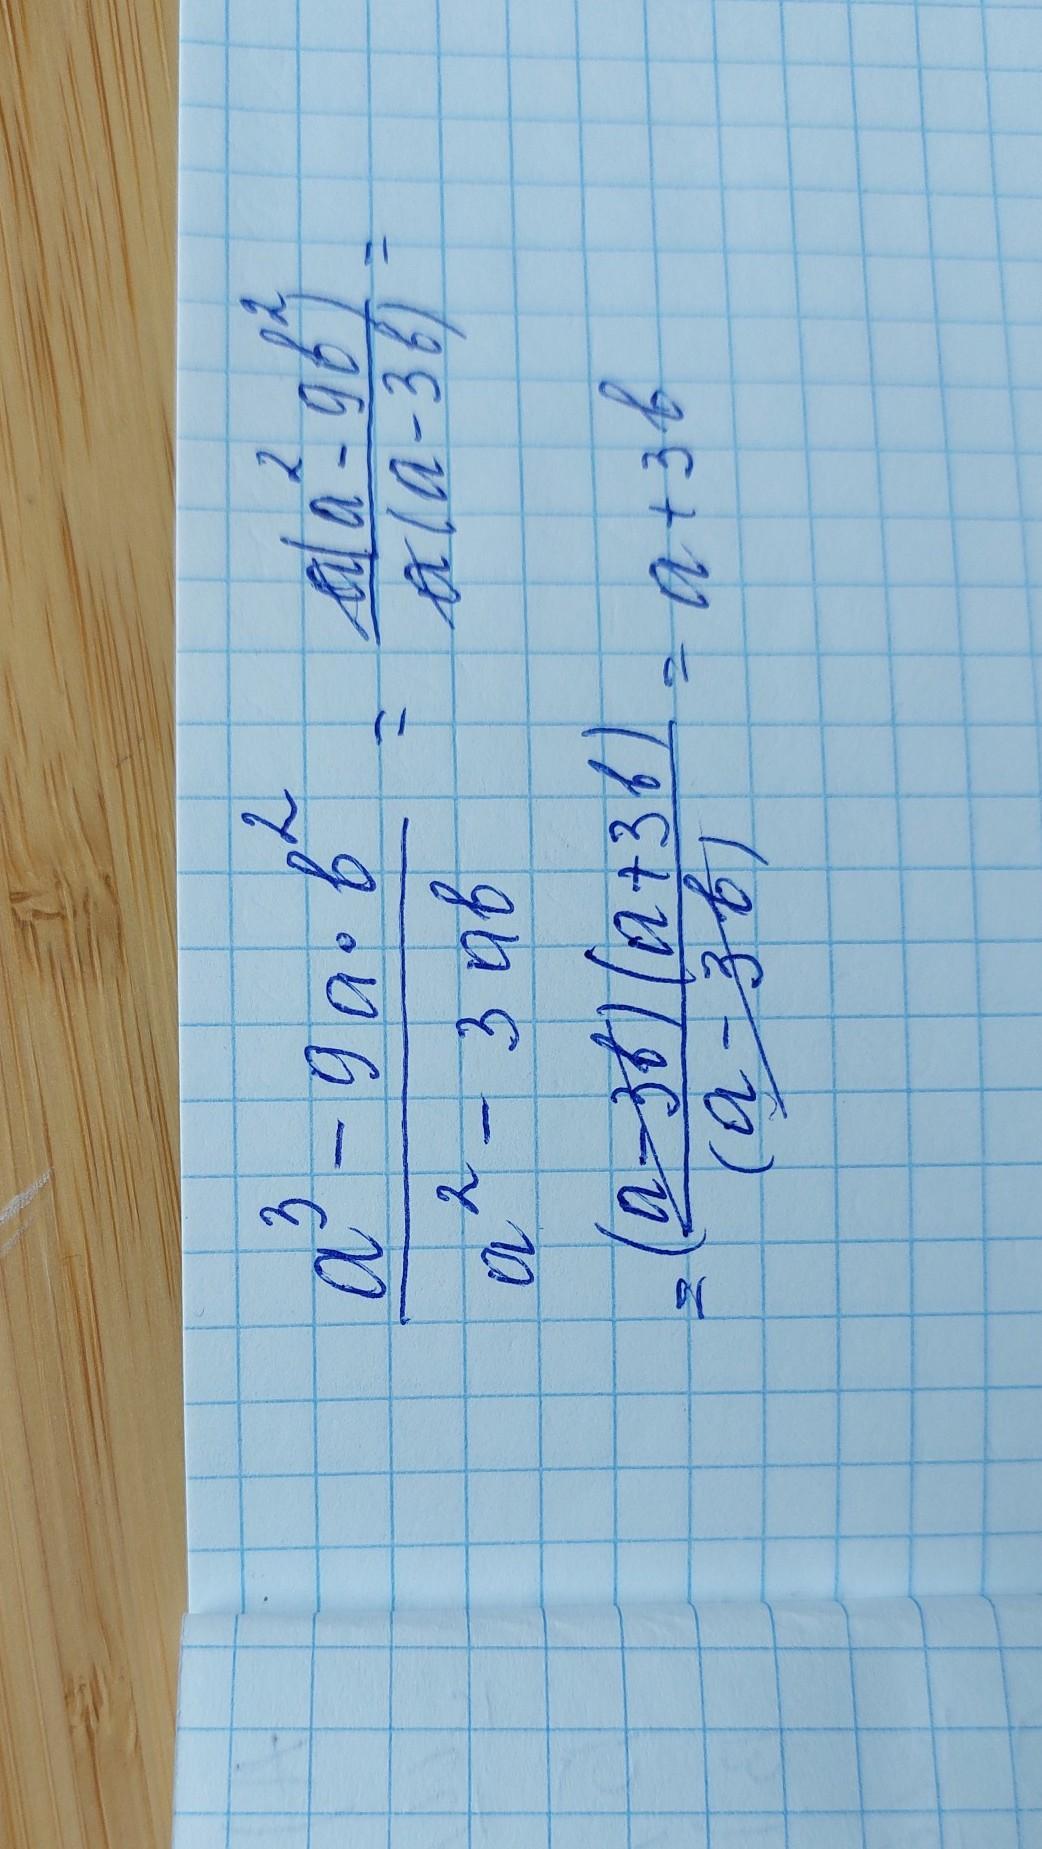 a³ - 9a·b² / a² - 3ab = a(a² - 9b²) / a(a - 3b) =
= (a - 3b)(a + 3b) / (a - 3b) = a + 3b